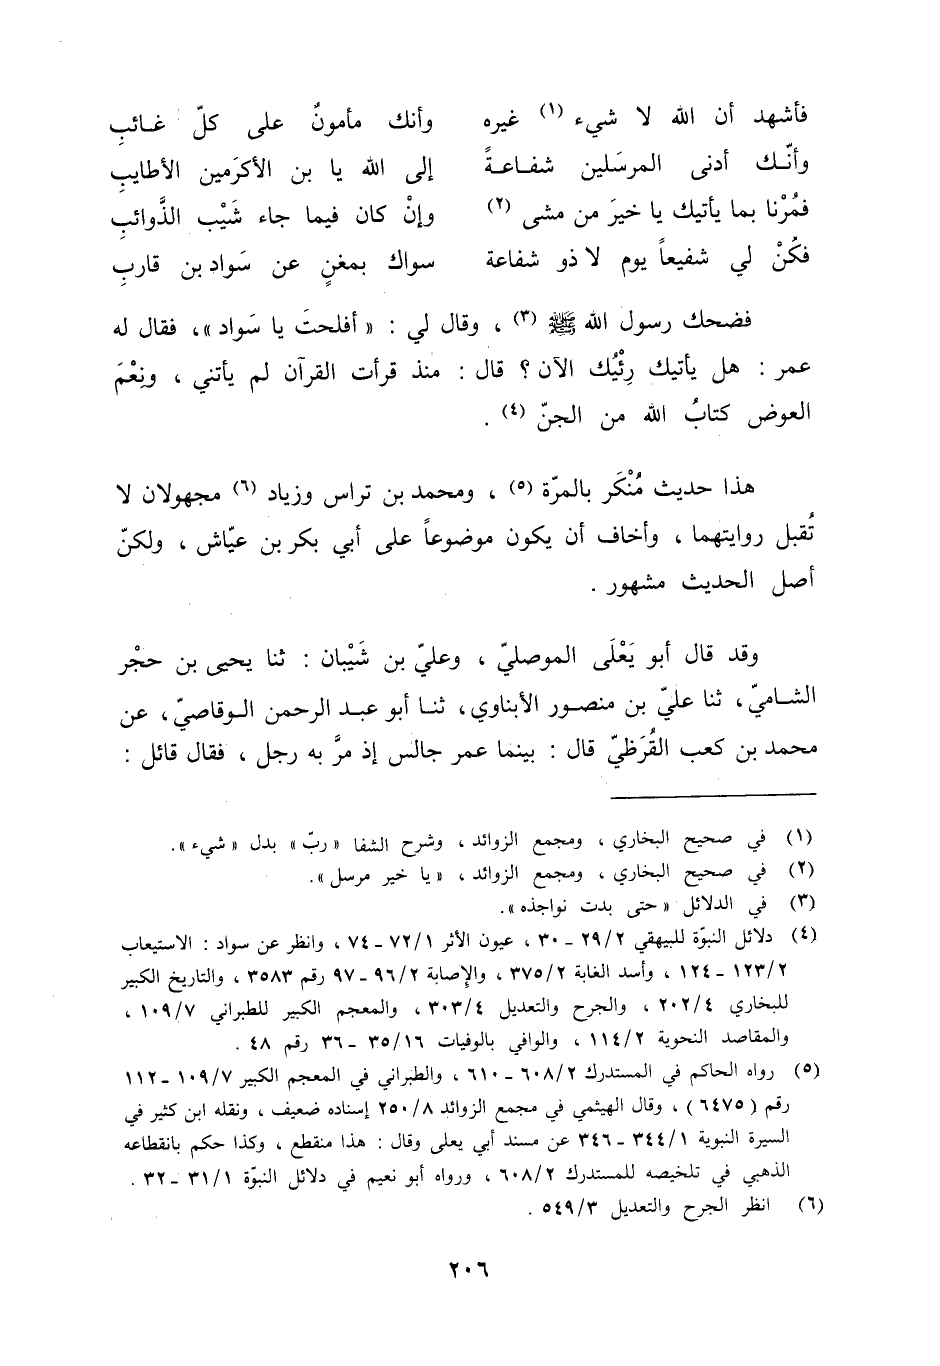 فأشهد أن الله لا شيء (١) غيره وأنك مأمونٌ على كلّ غائبِ
وأنّك أدنى المرسَلين شفاعةً إلى الله يا بن الأكرَمين الأطايبِ
فمُرْنا بما يأتيك يا خيرَ من مشى (٢) وإنْ كان فيما جاء شَيْب الذَّوائبِ
فكُنْ لي شفيعاً يوم لا ذو شفاعة سواك بمغنٍ عن سَواد بن قاربِ
فضحك رسول الله ﷺ (٣) ، وقال لي : « أفلحتَ يا سَواد »، فقال له
عمر : هل يأتيك رِئْيُك الآن ؟ قال : منذ قرأت القرآن لم يأتني ، ونِعْمَ
العوض كتابُ الله من الجنّ (٤) .
هذا حديث مُنْكَر بالمرّة (٥) ، ومحمد بن تراس وزياد (٦) مجهولان لا
تُقبل روايتهما ، وأخاف أن يكون موضوعاً على أبي بكر بن عيّاش ، ولكنّ
أصل الحديث مشهور .
وقد قال أبو يَعْلَى الموصليّ ، وعليّ بن شَيْبان : ثنا يحيى بن حجْر
الشاميّ ، ثنا عليّ بن منصور الأبناوي ، ثنا أبو عبد الرحمن الوقاصيّ ، عن
محمد بن كعب القُرَظيّ قال : بينما عمر جالس إذ مرَّ به رجل ، فقال قائل :
(١) في صحيح البخاري ، ومجمع الزوائد ، وشرح الشفا « ربّ » بدل « شيء ».
(٢) في صحيح البخاري ، ومجمع الزوائد ، « يا خير مرسل ».
(٣) في الدلائل « حتى بدت نواجذه ».
(٤) دلائل النبوّة للبيهقي ٢٩/٢ - ٣٠ ، عيون الأثر ٧٢/١ - ٧٤ ، وانظر عن سواد : الاستيعاب
١٢٣/٢ - ١٢٤ ، وأسد الغابة ٣٧٥/٢ ، والإصابة ٩٦/٢ - ٩٧ رقم ٣٥٨٣ ، والتاريخ الكبير
للبخاري ٢٠٢/٤ ، والجرح والتعديل ٣٠٣/٤ ، والمعجم الكبير للطبراني ١٠٩/٧ ،
والمقاصد النحوية ١١٤/٢ ، والوافي بالوفيات ٣٥/١٦ - ٣٦ رقم ٤٨ .
(٥) رواه الحاكم في المستدرك ٦٠٨/٢ - ٦١٠ ، والطبراني في المعجم الكبير ١٠٩/٧ - ١١٢
رقم (٦٤٧٥) ، وقال الهيثمي في مجمع الزوائد ٢٥٠/٨ إسناده ضعيف ، ونقله ابن كثير في
السيرة النبوية ٣٤٤/١ - ٣٤٦ عن مسند أبي يعلى وقال : هذا منقطع ، وكذا حكم بانقطاعه
الذهبي في تلخيصه للمستدرك ٦٠٨/٢ ، ورواه أبو نعيم في دلائل النبوّة ٣١/١ - ٣٢ .
(٦) انظر الجرح والتعديل ٥٤٩/٣ .
٢٠٦